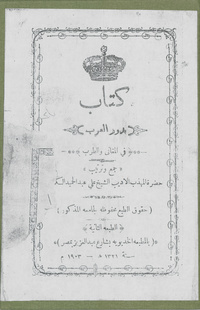 كتاب
بدور العرب
في المغاني والطرب
جمع وترتيب
حضرة المهذب الاديب الشيخ علي عبد الحميد
( حقوق الطبع محفوظة لجامعه المذكور )
الطبعة الثانية
( بالمطبعة الخديوية بشارع عبد العزيز بمصر )
سنة ١٣٢١ هـ ١٩٠٣ م